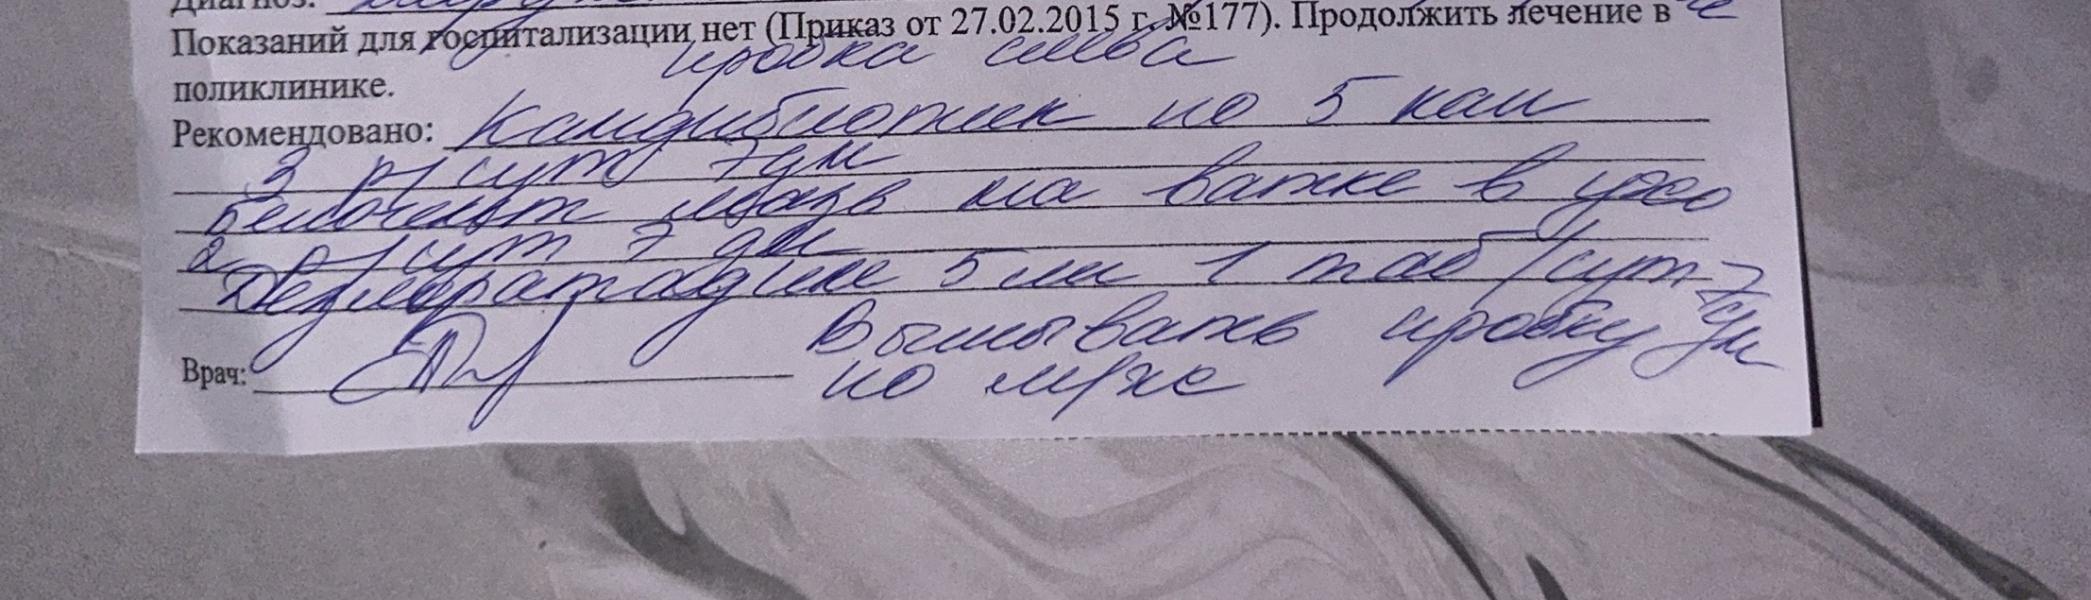 Диагноз:
Показаний для госпитализации нет (Приказ от 27.02.2015 г. №177). Продолжить лечение в
пробка слева
поликлинике.
Рекомендовано: Кандибиотик по 5 кап
3 р/сут 7 дн
Белогент мазь на ватке в ухо
2 р/сут 7 дн
Дезлоратадине 5 мг 1 таб/сут 7 дн
Врач:
Вымывать пробку
по м/ж